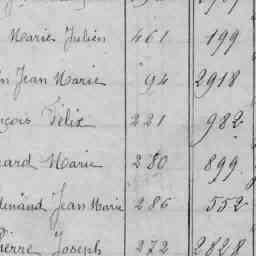 Marie Julien 461 199
n Jean Marie 94 2918
nçois Félix 221 982
nard Marie 280 899
dinand Jean Marie 286 552
Pierre Joseph 272 2828